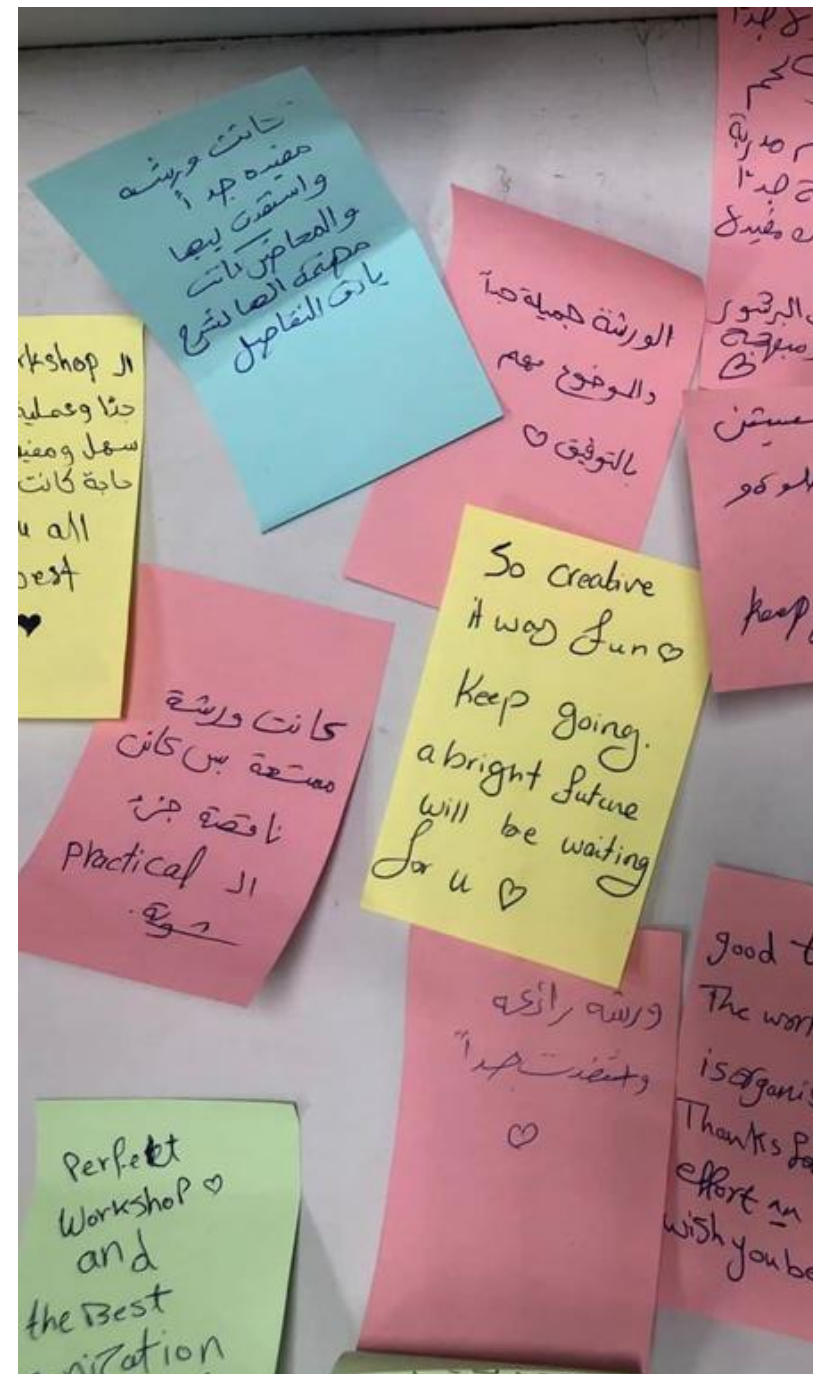 كانت ورشه
مفيده جداً
واستفدت بيها
والمحاضر كانت
مهتمة انها تشرح
بادق التفاصيل
الورشة جميلة جداً
والموضوع مهم
بالتوفيق ♡
جداً
مدربة
جداً
البرشور
♡
keep
ال kshop
جدًا وعملية
سهل ومفيد
حاجة كانت
u all
best
♥
So creative
it was fun ♡
Keep going.
a bright future
will be waiting
for u ♡
كانت ورشة
ممتعة بس كان
ناقصة جزء
ال Practical
شوية.
ورشه رائعه
واستفدت جداً
♡
good t
The wor
is organis
Thanks fo
effort an
wish you be
Perfect
Workshop ♡
and
the Best
nization